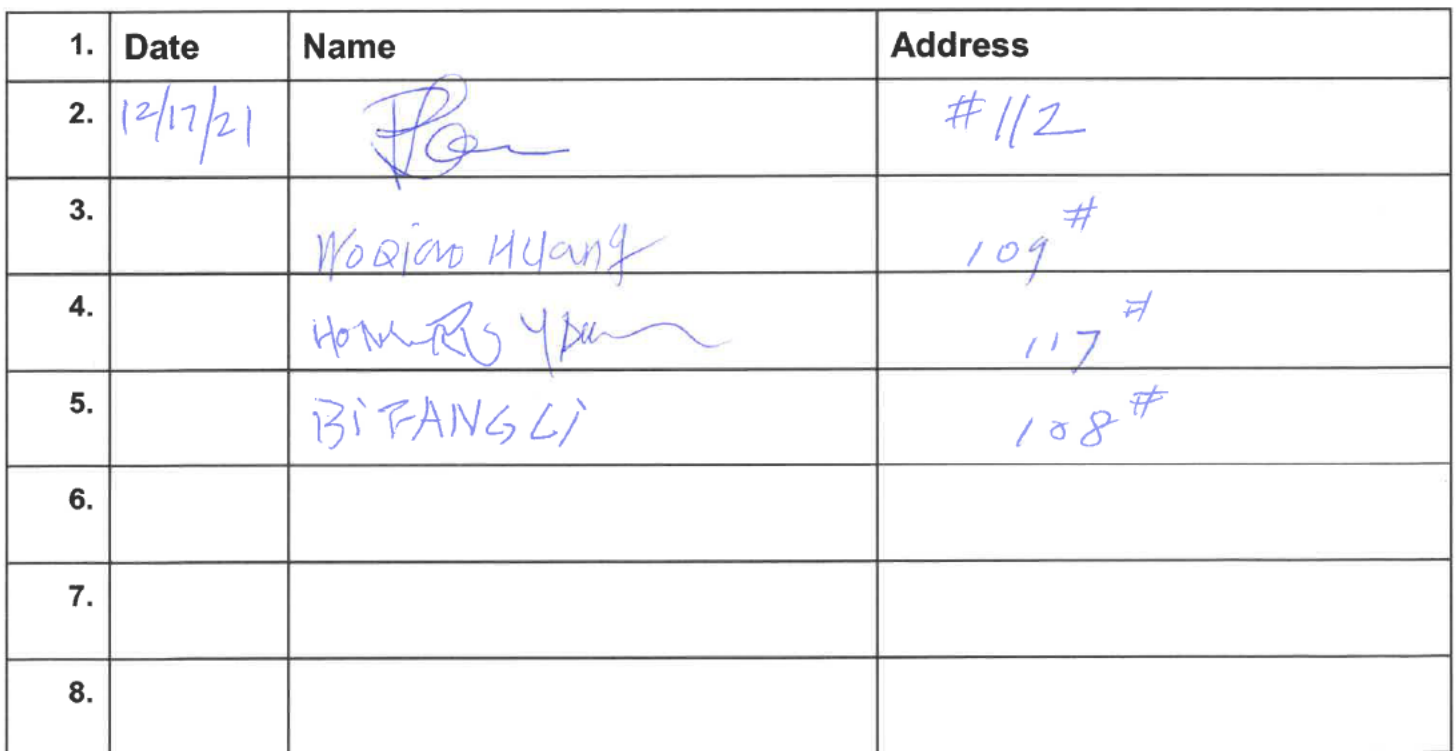 1. Date Name Address
2. 12/17/21 #112
3. Woqiao Huang 109#
4. 117#
5. Bi FANG Li 108#
6.
7.
8.